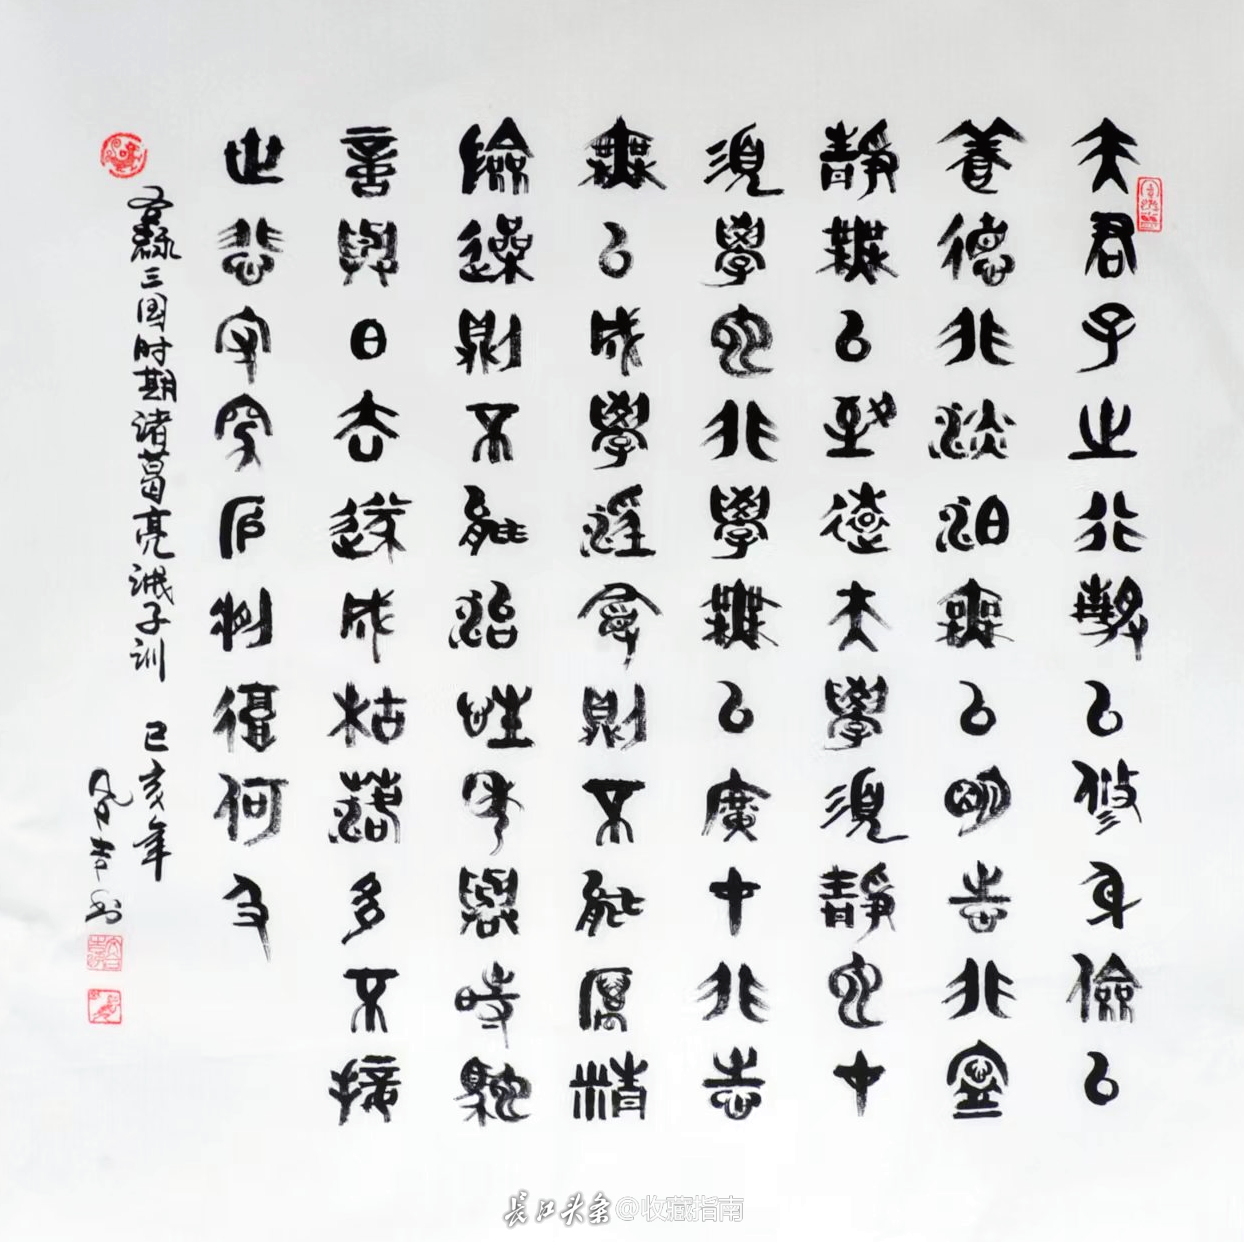 夫君子之行靜以修身儉以
養德非澹泊無以明志非寧
靜無以致遠夫學須靜也才
須學也非學無以廣才非志
無以成學淫慢則不能厲精
險躁則不能治性年與時馳
意與日去遂成枯落多不接
世悲守窮廬將復何及
右録三国时期诸葛亮诫子训 己亥年
長江头条@收藏指南